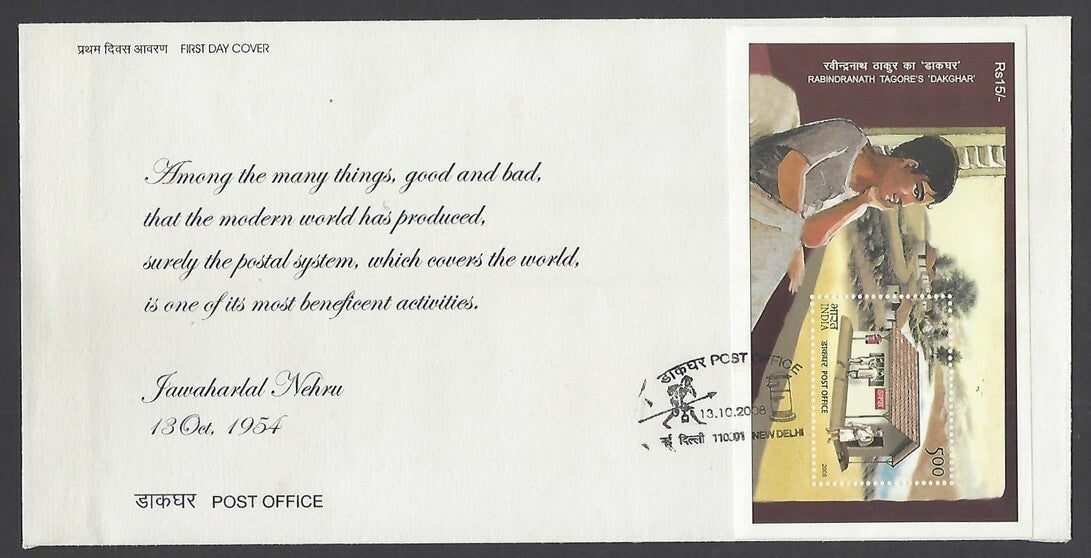 प्रथम दिवस आवरण FIRST DAY COVER
Among the many things, good and bad,
that the modern world has produced,
surely the postal system, which covers the world,
is one of its most beneficent activities.
Jawaharlal Nehru
13 Oct, 1954
डाकघर POST OFFICE
रवीन्द्रनाथ ठाकुर का 'डाकघर'
RABINDRANATH TAGORE'S 'DAKGHAR'
Rs15/-
भारत
INDIA
डाकघर POST OFFICE
5.00
2008
डाकघर POST OFFICE
13.10.2008
नई दिल्ली 110001 NEW DELHI